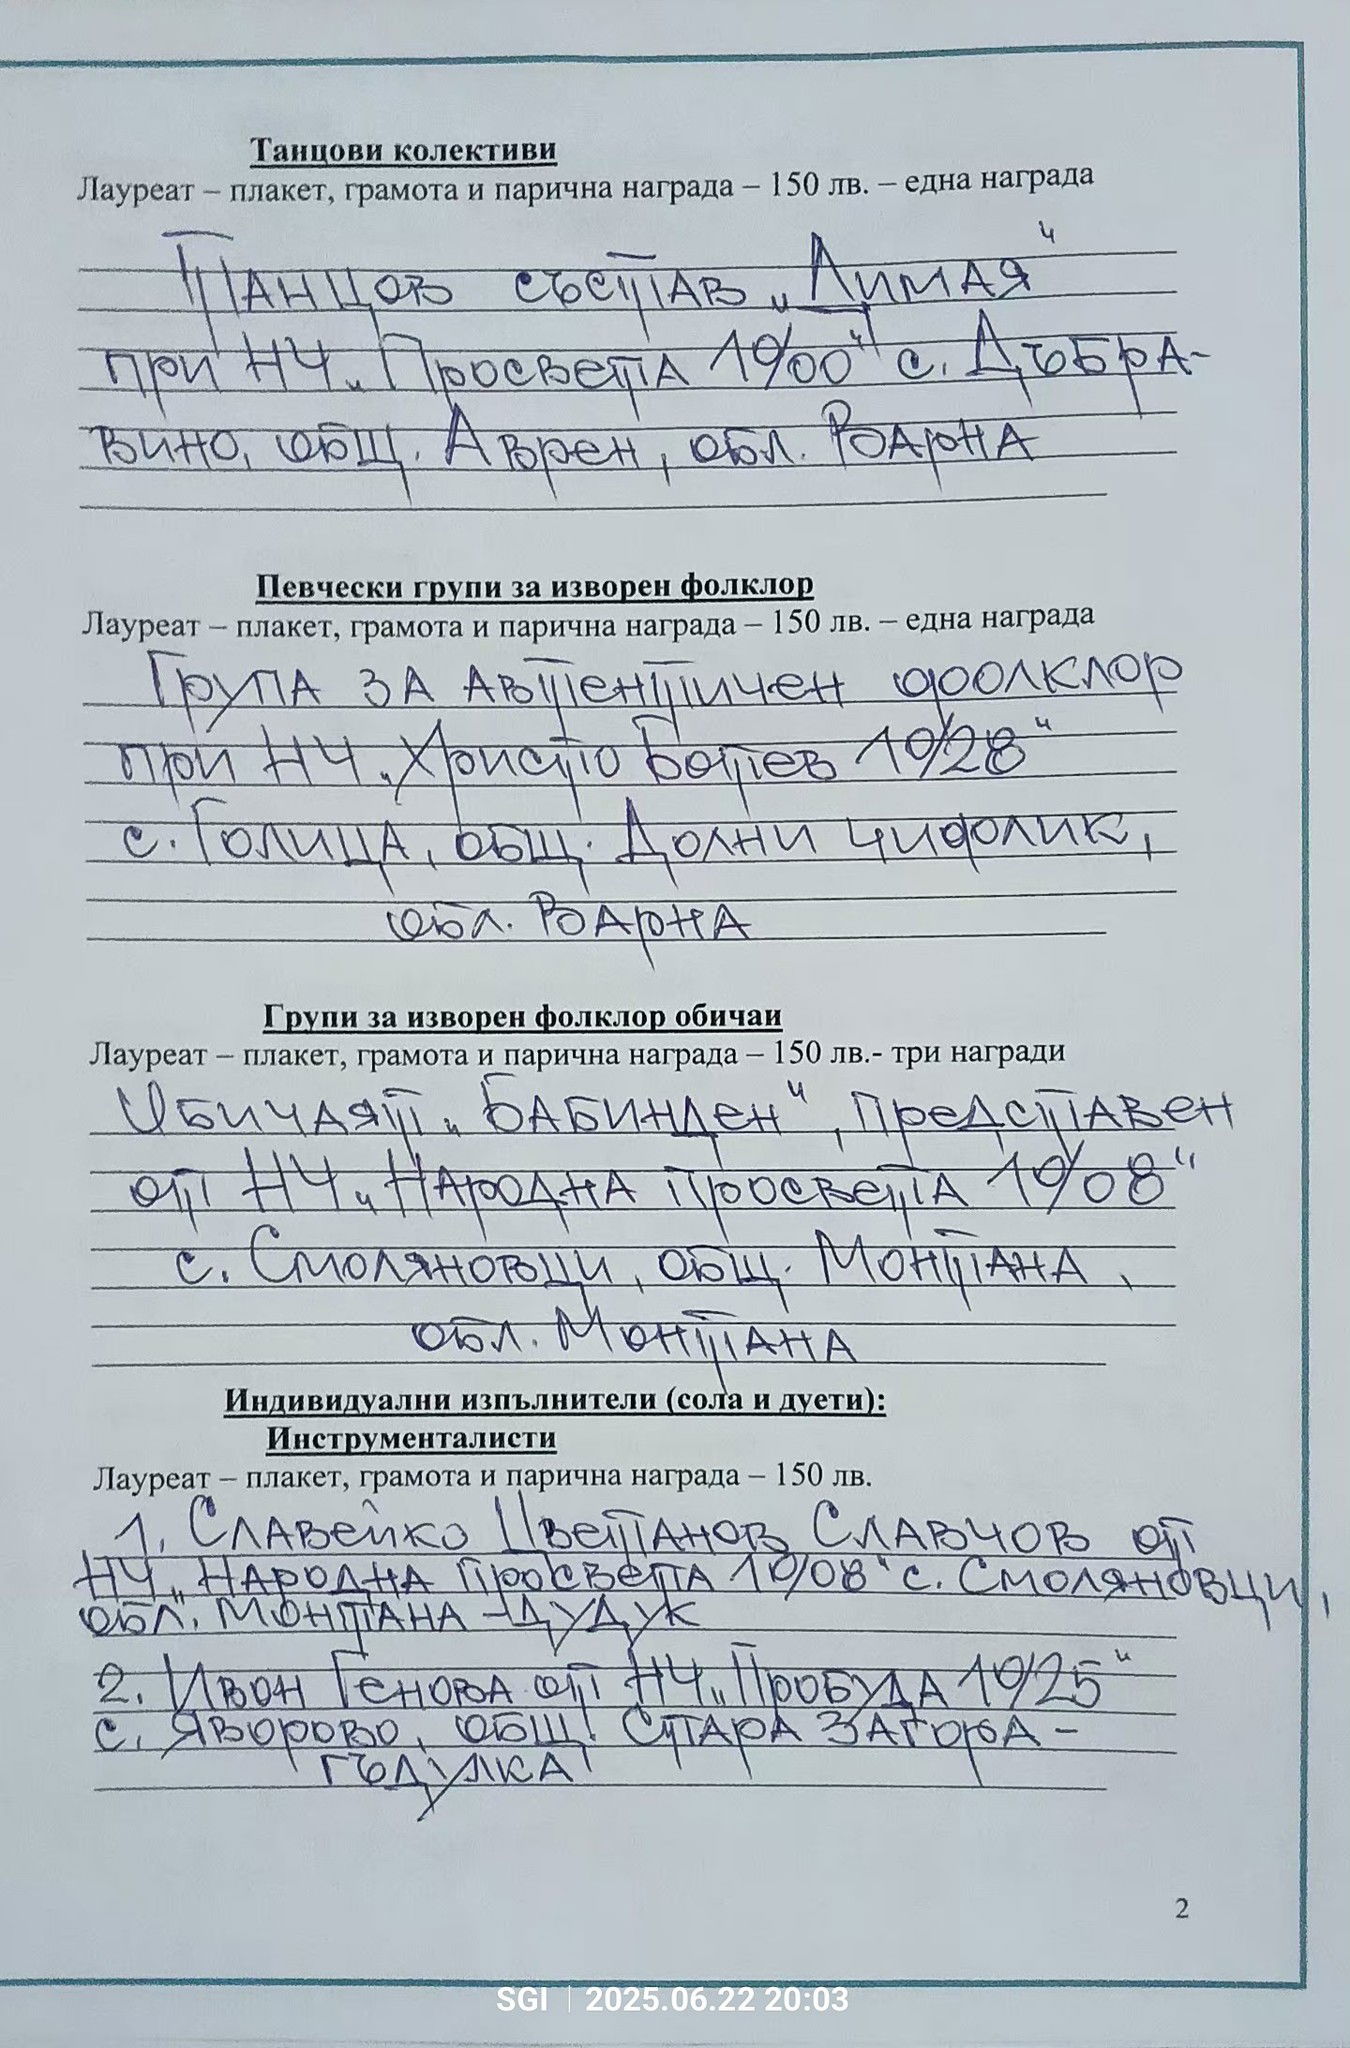 Танцови колективи
Лауреат – плакет, грамота и парична награда – 150 лв. – една награда
Танцов състав „Димая“
при НЧ „Просвета 1900“ с. Дъбра-
вино, общ. Аврен, обл. Варна
Певчески групи за изворен фолклор
Лауреат – плакет, грамота и парична награда – 150 лв. – една награда
Група за автентичен фолклор
при НЧ „Христо Ботев 1928“
с. Голица, общ. Долни чифлик,
обл. Варна
Групи за изворен фолклор обичаи
Лауреат – плакет, грамота и парична награда – 150 лв.- три награди
Обичаят „Бабинден“, представен
от НЧ „Народна просвета 1908“
с. Смоляновци, общ. Монтана,
обл. Монтана
Индивидуални изпълнители (сола и дуети):
Инструменталисти
Лауреат – плакет, грамота и парична награда – 150 лв.
1. Славейко Цветанов Славчов от
НЧ „Народна просвета 1908“ с. Смоляновци,
обл. Монтана – дудук
2. Ивон Генова от НЧ „Пробуда 1925“
с. Яворово, общ. Стара Загора –
гъдулка
2
SGI | 2025.06.22 20:03